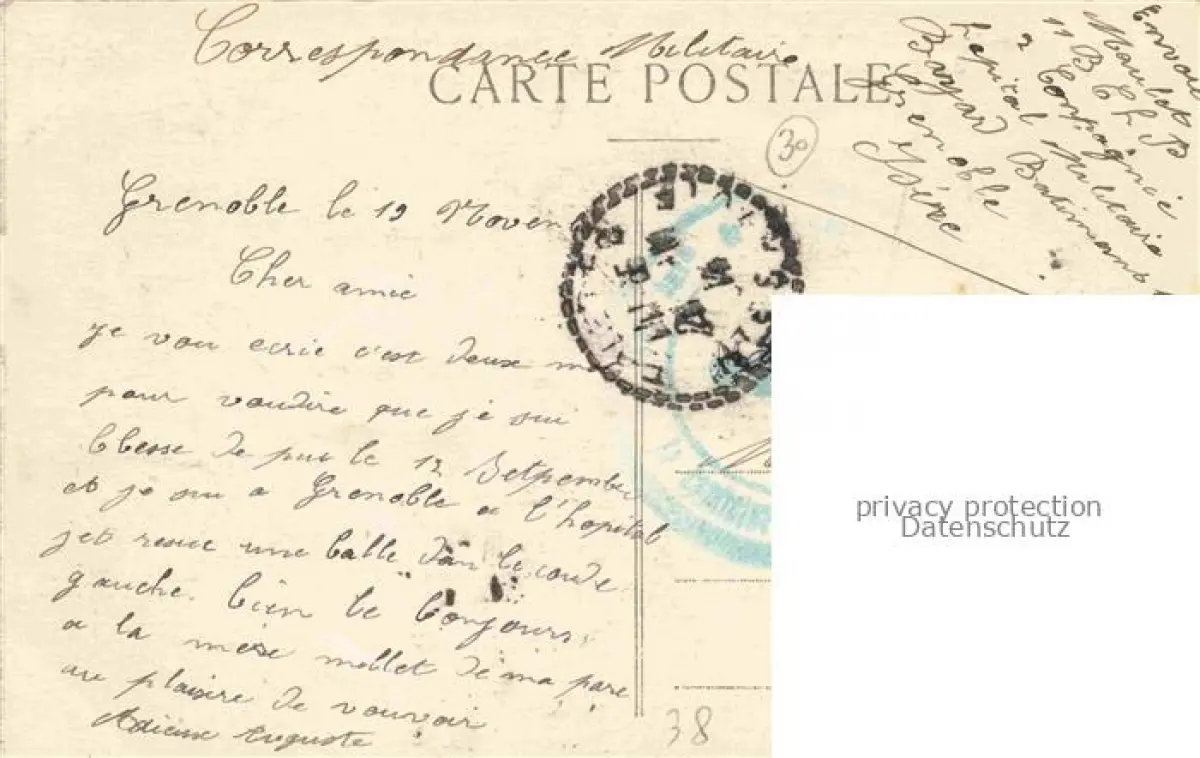 Correspondance Militaire
CARTE POSTALE
30
Envoi
11 B C h P
2 Conpagnie
hopital Militaire
Bayard Batiman
Grenoble
Isére
Grenoble le 19 Noven
Cher amie
je vou ecrie c'est deux
pour voudire que je sui
blesse de puis le 12 Setpember
et je sui a Grenoble a l'hopital
jet resue une balle dan le coude
gauche. bien le bonjours
a la mère mollet de ma pare
au plaisire de vouvoir
Auguste
38
privacy protection
Datenschutz